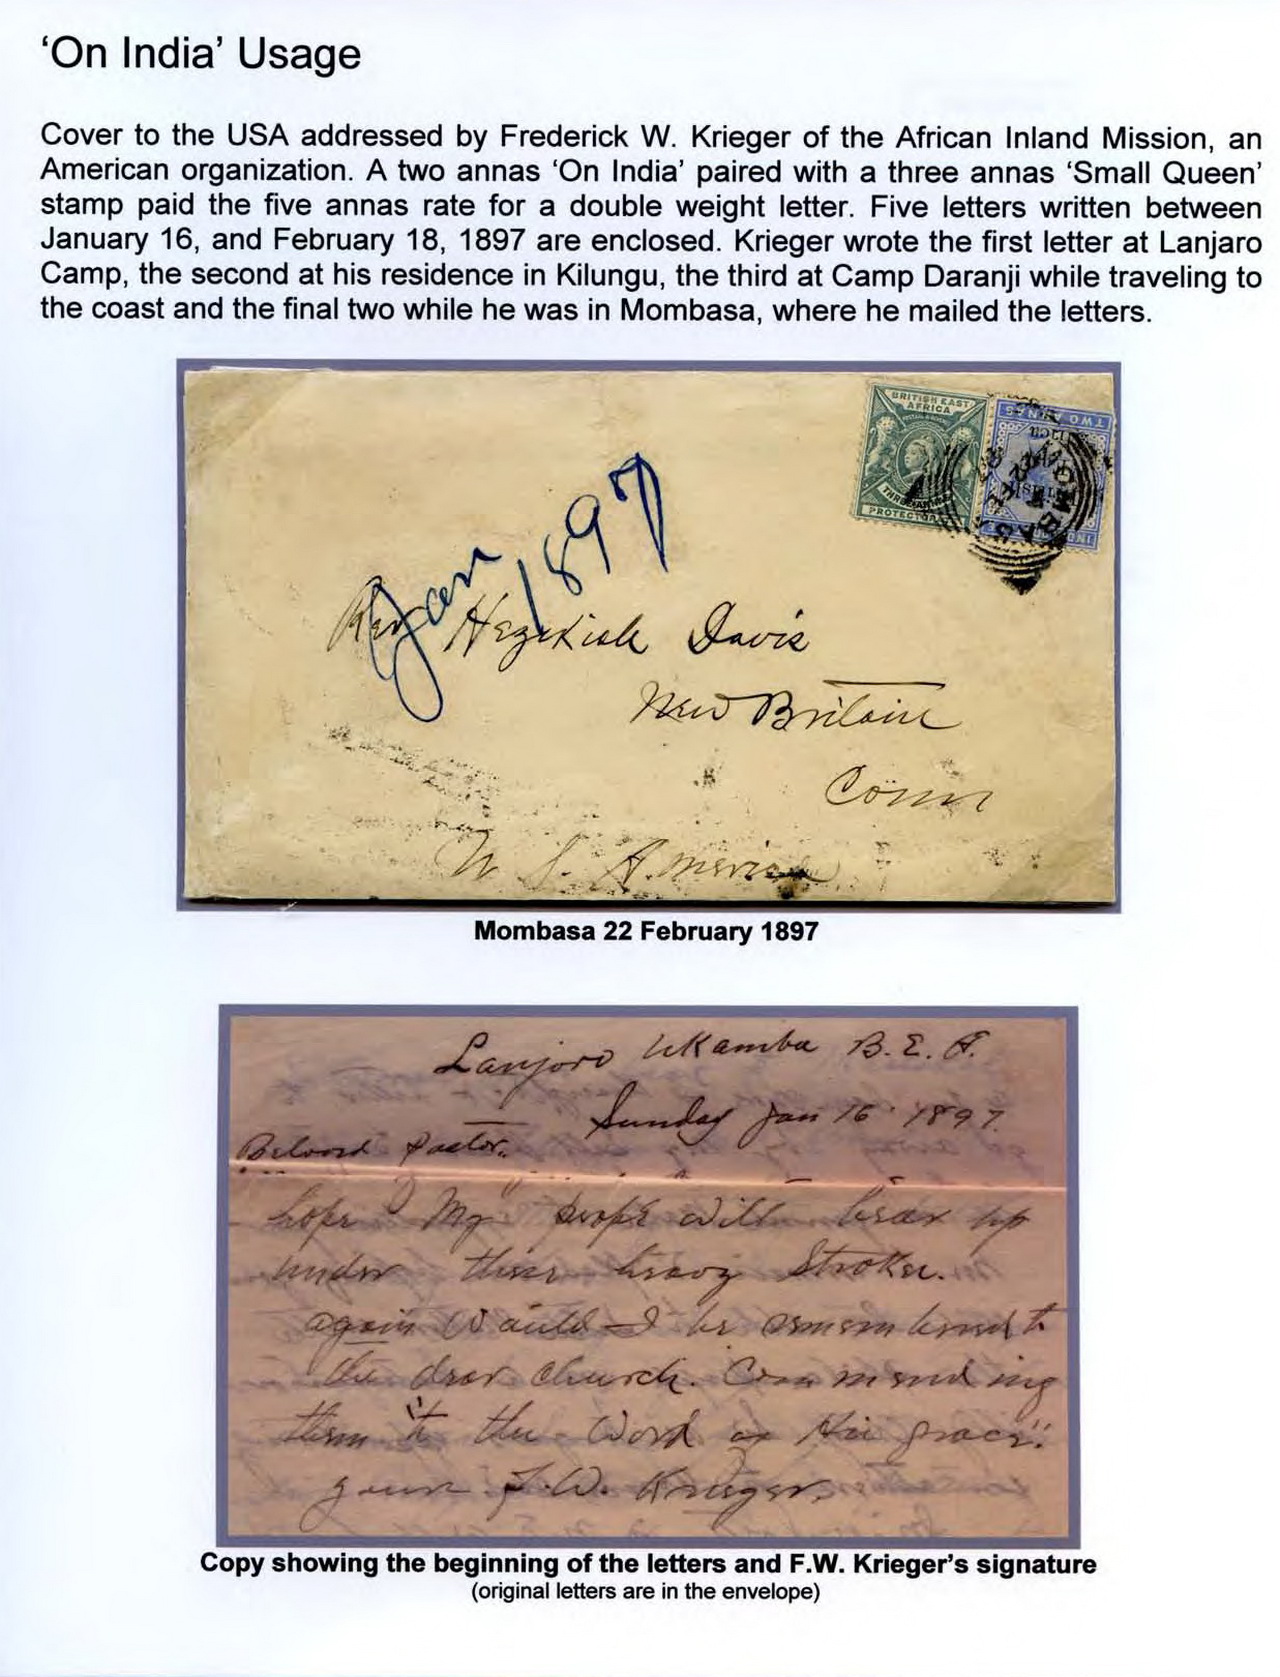 ‘On India’ Usage
Cover to the USA addressed by Frederick W. Krieger of the African Inland Mission, an
American organization. A two annas ‘On India’ paired with a three annas ‘Small Queen’
stamp paid the five annas rate for a double weight letter. Five letters written between
January 16, and February 18, 1897 are enclosed. Krieger wrote the first letter at Lanjaro
Camp, the second at his residence in Kilungu, the third at Camp Daranji while traveling to
the coast and the final two while he was in Mombasa, where he mailed the letters.
BRITISH EAST
AFRICA
TWO ANNAS
Jan 1897
Rev Hezekiah Davis
New Britain
Conn
U S. America
Mombasa 22 February 1897
Lanjoro Ukamba B. E. A.
Sunday Jan 16 1897
Beloved Pastor.
hope my people will bear up
under these heavy Strokes.
again would I be remembered to
the dear church. Commending
them "to the Word of His grace".
yours F. W. Krieger.
Copy showing the beginning of the letters and F.W. Krieger’s signature
(original letters are in the envelope)